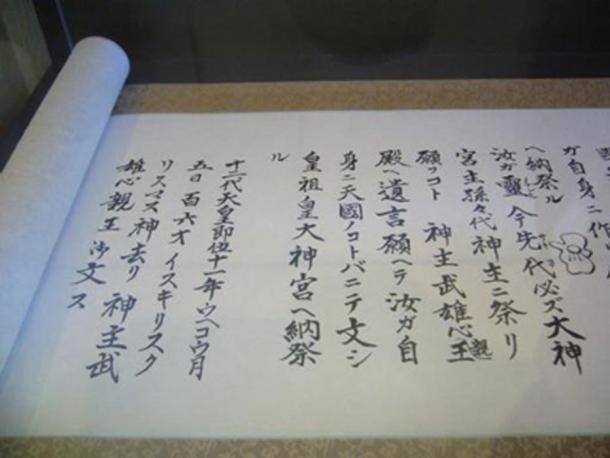 ガ自身ニ作
ヘ納祭ル
汝ガ靈 今先代必ズ大神
宮主孫々代神主ニ祭リ
願フコト 神主武雄心親王
殿ヘ遺言願ヘテ汝ガ自
身ニ天國ノコトバニテ文シ
皇祖皇大神宮ヘ納祭
ル
十二代天皇即位十一年ウヘコウ月
五日 百六才 イスキリスク
リスマス神去リ 神主武
雄心親王 御文ス